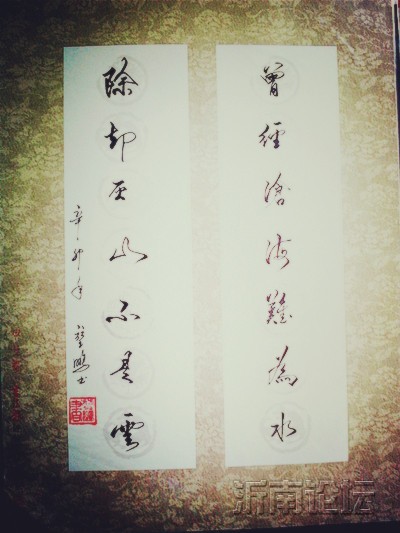 曾經滄海難為水
除却巫山不是雲
辛卯年
沂南论坛